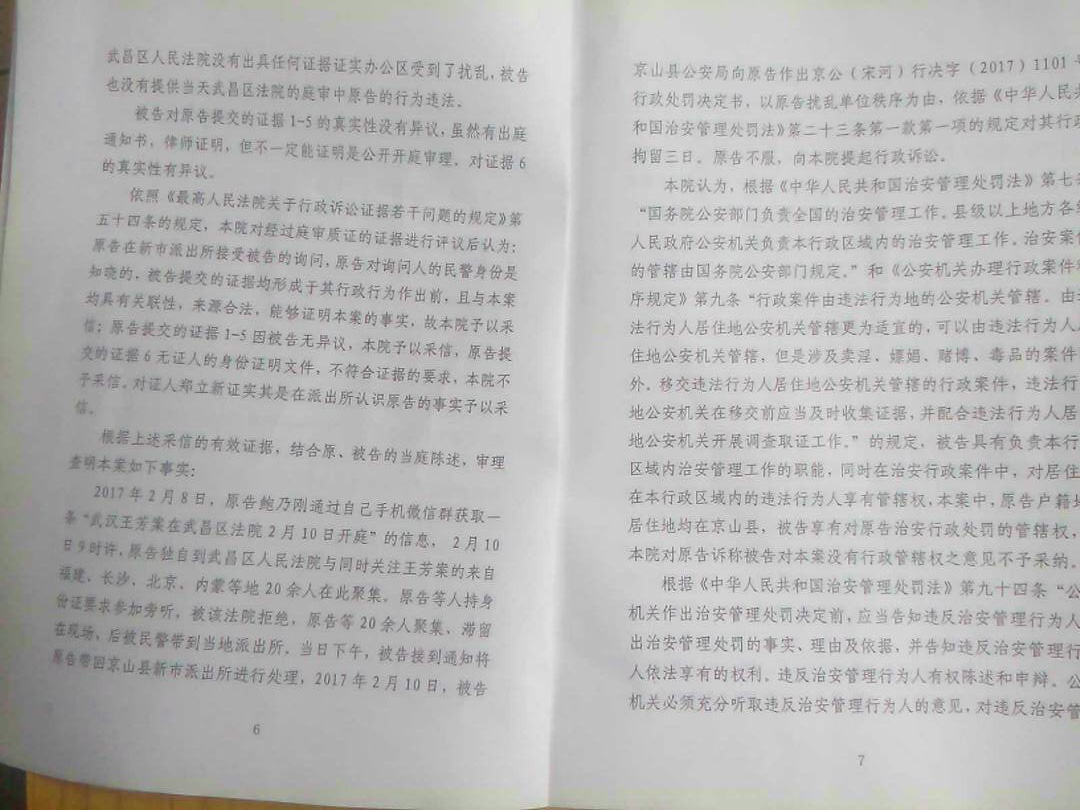 武昌区人民法院没有出具任何证据证实办公区受到了扰乱，被告
也没有提供当天武昌区法院的庭审中原告的行为违法。
被告对原告提交的证据1-5的真实性没有异议，虽然有出庭
通知书，律师证明，但不一定能证明是公开开庭审理，对证据6
的真实性有异议。
依照《最高人民法院关于行政诉讼证据若干问题的规定》第
五十四条的规定，本院对经过庭审质证的证据进行评议后认为：
原告在新市派出所接受被告的询问，原告对询问人的民警身份是
知晓的，被告提交的证据均形成于其行政行为作出前，且与本案
均具有关联性，来源合法，能够证明本案的事实，故本院予以采
信；原告提交的证据1-5因被告无异议，本院予以采信，原告提
交的证据6无证人的身份证明文件，不符合证据的要求，本院不
予采信。对证人郑立新证实其是在派出所认识原告的事实予以采
信。
根据上述采信的有效证据，结合原、被告的当庭陈述，审理
查明本案如下事实：
2017年2月8日，原告鲍乃刚通过自己手机微信群获取一
条“武汉王芳案在武昌区法院2月10日开庭”的信息，2月10
日9时许，原告独自到武昌区人民法院与同时关注王芳案的来自
福建、长沙、北京、内蒙等地20余人在此聚集。原告等人持身
份证要求参加旁听，被该法院拒绝，原告等20余人聚集、滞留
在现场，后被民警带到当地派出所。当日下午，被告接到通知将
原告带回京山县新市派出所进行处理，2017年2月10日，被告
6
京山县公安局向原告作出京公（宋河）行决字（2017）1101
行政处罚决定书，以原告扰乱单位秩序为由，依据《中华人民共
和国治安管理处罚法》第二十三条第一款第一项的规定对其行政
拘留三日。原告不服，向本院提起行政诉讼。
本院认为，根据《中华人民共和国治安管理处罚法》第七
“国务院公安部门负责全国的治安管理工作。县级以上地方各
人民政府公安机关负责本行政区域内的治安管理工作。治安案
的管辖由国务院公安部门规定。”和《公安机关办理行政案件
序规定》第九条“行政案件由违法行为地的公安机关管辖。由
法行为人居住地公安机关管辖更为适宜的，可以由违法行为人
住地公安机关管辖，但是涉及卖淫、嫖娼、赌博、毒品的案件
外。移交违法行为人居住地公安机关管辖的行政案件，违法行
地公安机关在移交前应当及时收集证据，并配合违法行为人居
地公安机关开展调查取证工作。”的规定，被告具有负责本行
区域内治安管理工作的职能，同时在治安行政案件中，对居住
在本行政区域内的违法行为人享有管辖权，本案中，原告户籍
居住地均在京山县，被告享有对原告治安行政处罚的管辖权，
本院对原告诉称被告对本案没有行政管辖权之意见不予采纳。
根据《中华人民共和国治安管理处罚法》第九十四条“公
机关作出治安管理处罚决定前，应当告知违反治安管理行为人
出治安管理处罚的事实、理由及依据，并告知违反治安管理行
人依法享有的权利。违反治安管理行为人有权陈述和申辩。公
机关必须充分听取违反治安管理行为人的意见，对违反治安管
7